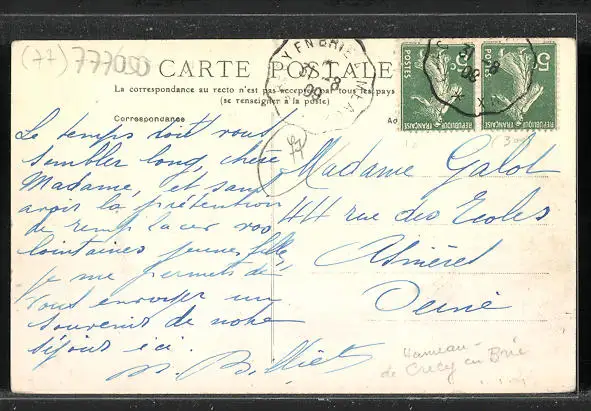 (77) 777050
CARTE POSTALE
La correspondance au recto n'est pas acceptée par tous les pays
(se renseigner à la poste)
Correspondance
Le temps vont vous
sembler long, chère
Madame, et sans
avoir la prétention
de remplacer vos
lointaines jeunes filles,
je me permets de
vous envoyer un
souvenir de notre
séjour ici.
77
Madame Galot
44 rue des Ecoles
Asnières
Seine
Hameau
de Crécy en Brie
5c POSTES
RÉPUBLIQUE FRANÇAISE
5c POSTES
RÉPUBLIQUE FRANÇAISE
Y EN BRIE
8 09